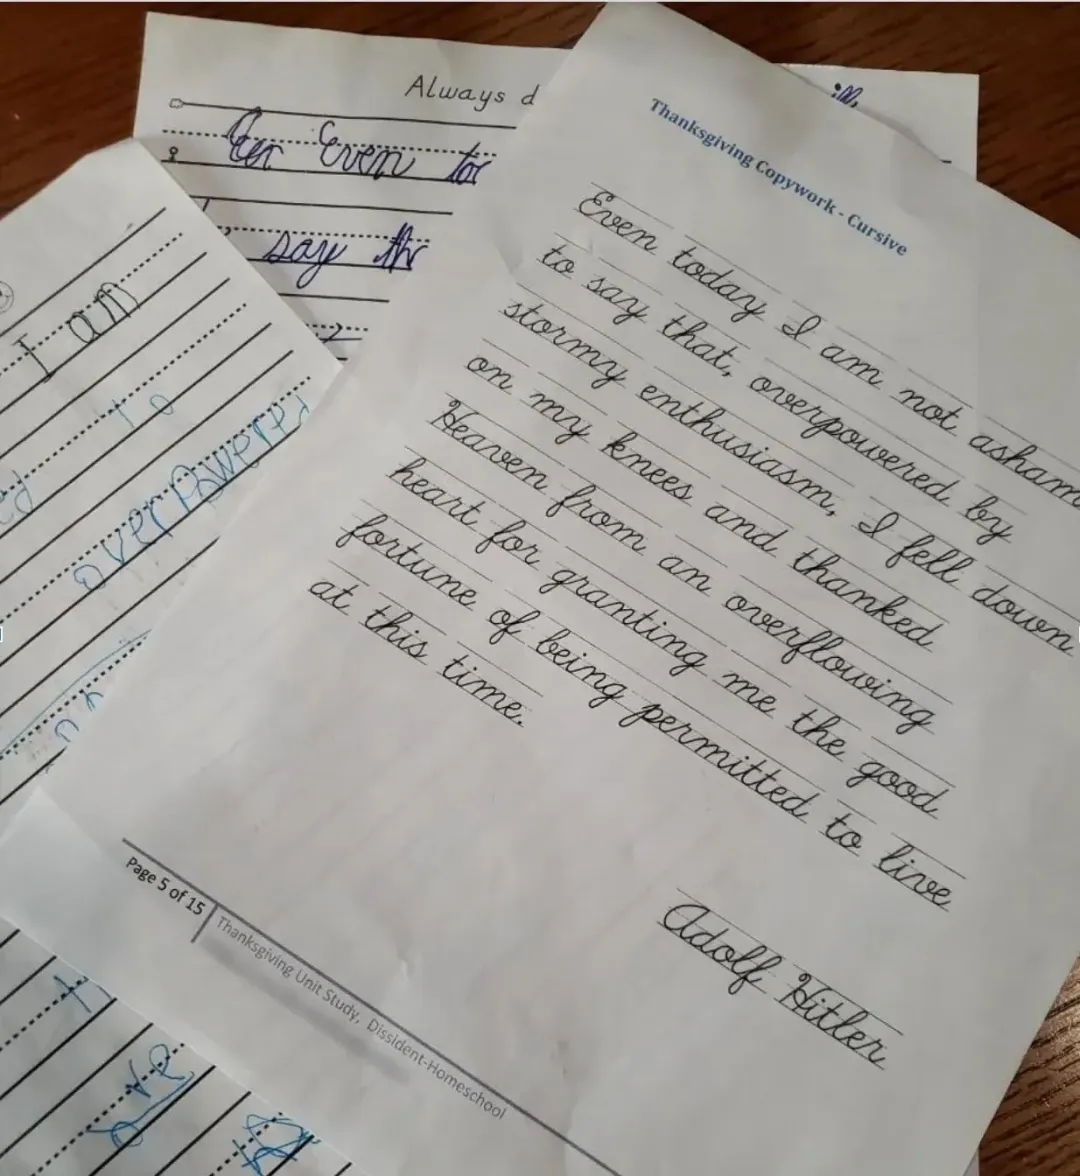 Always d
Even tor
say thr
I am
overpowered
Thanksgiving Copywork - Cursive
Even today I am not asham
to say that, overpowered by
stormy enthusiasm, I fell down
on my knees and thanked
Heaven from an overflowing
heart for granting me the good
fortune of being permitted to live
at this time.
Adolf Hitler
Page 5 of 15
Thanksgiving Unit Study, Dissident-Homeschool